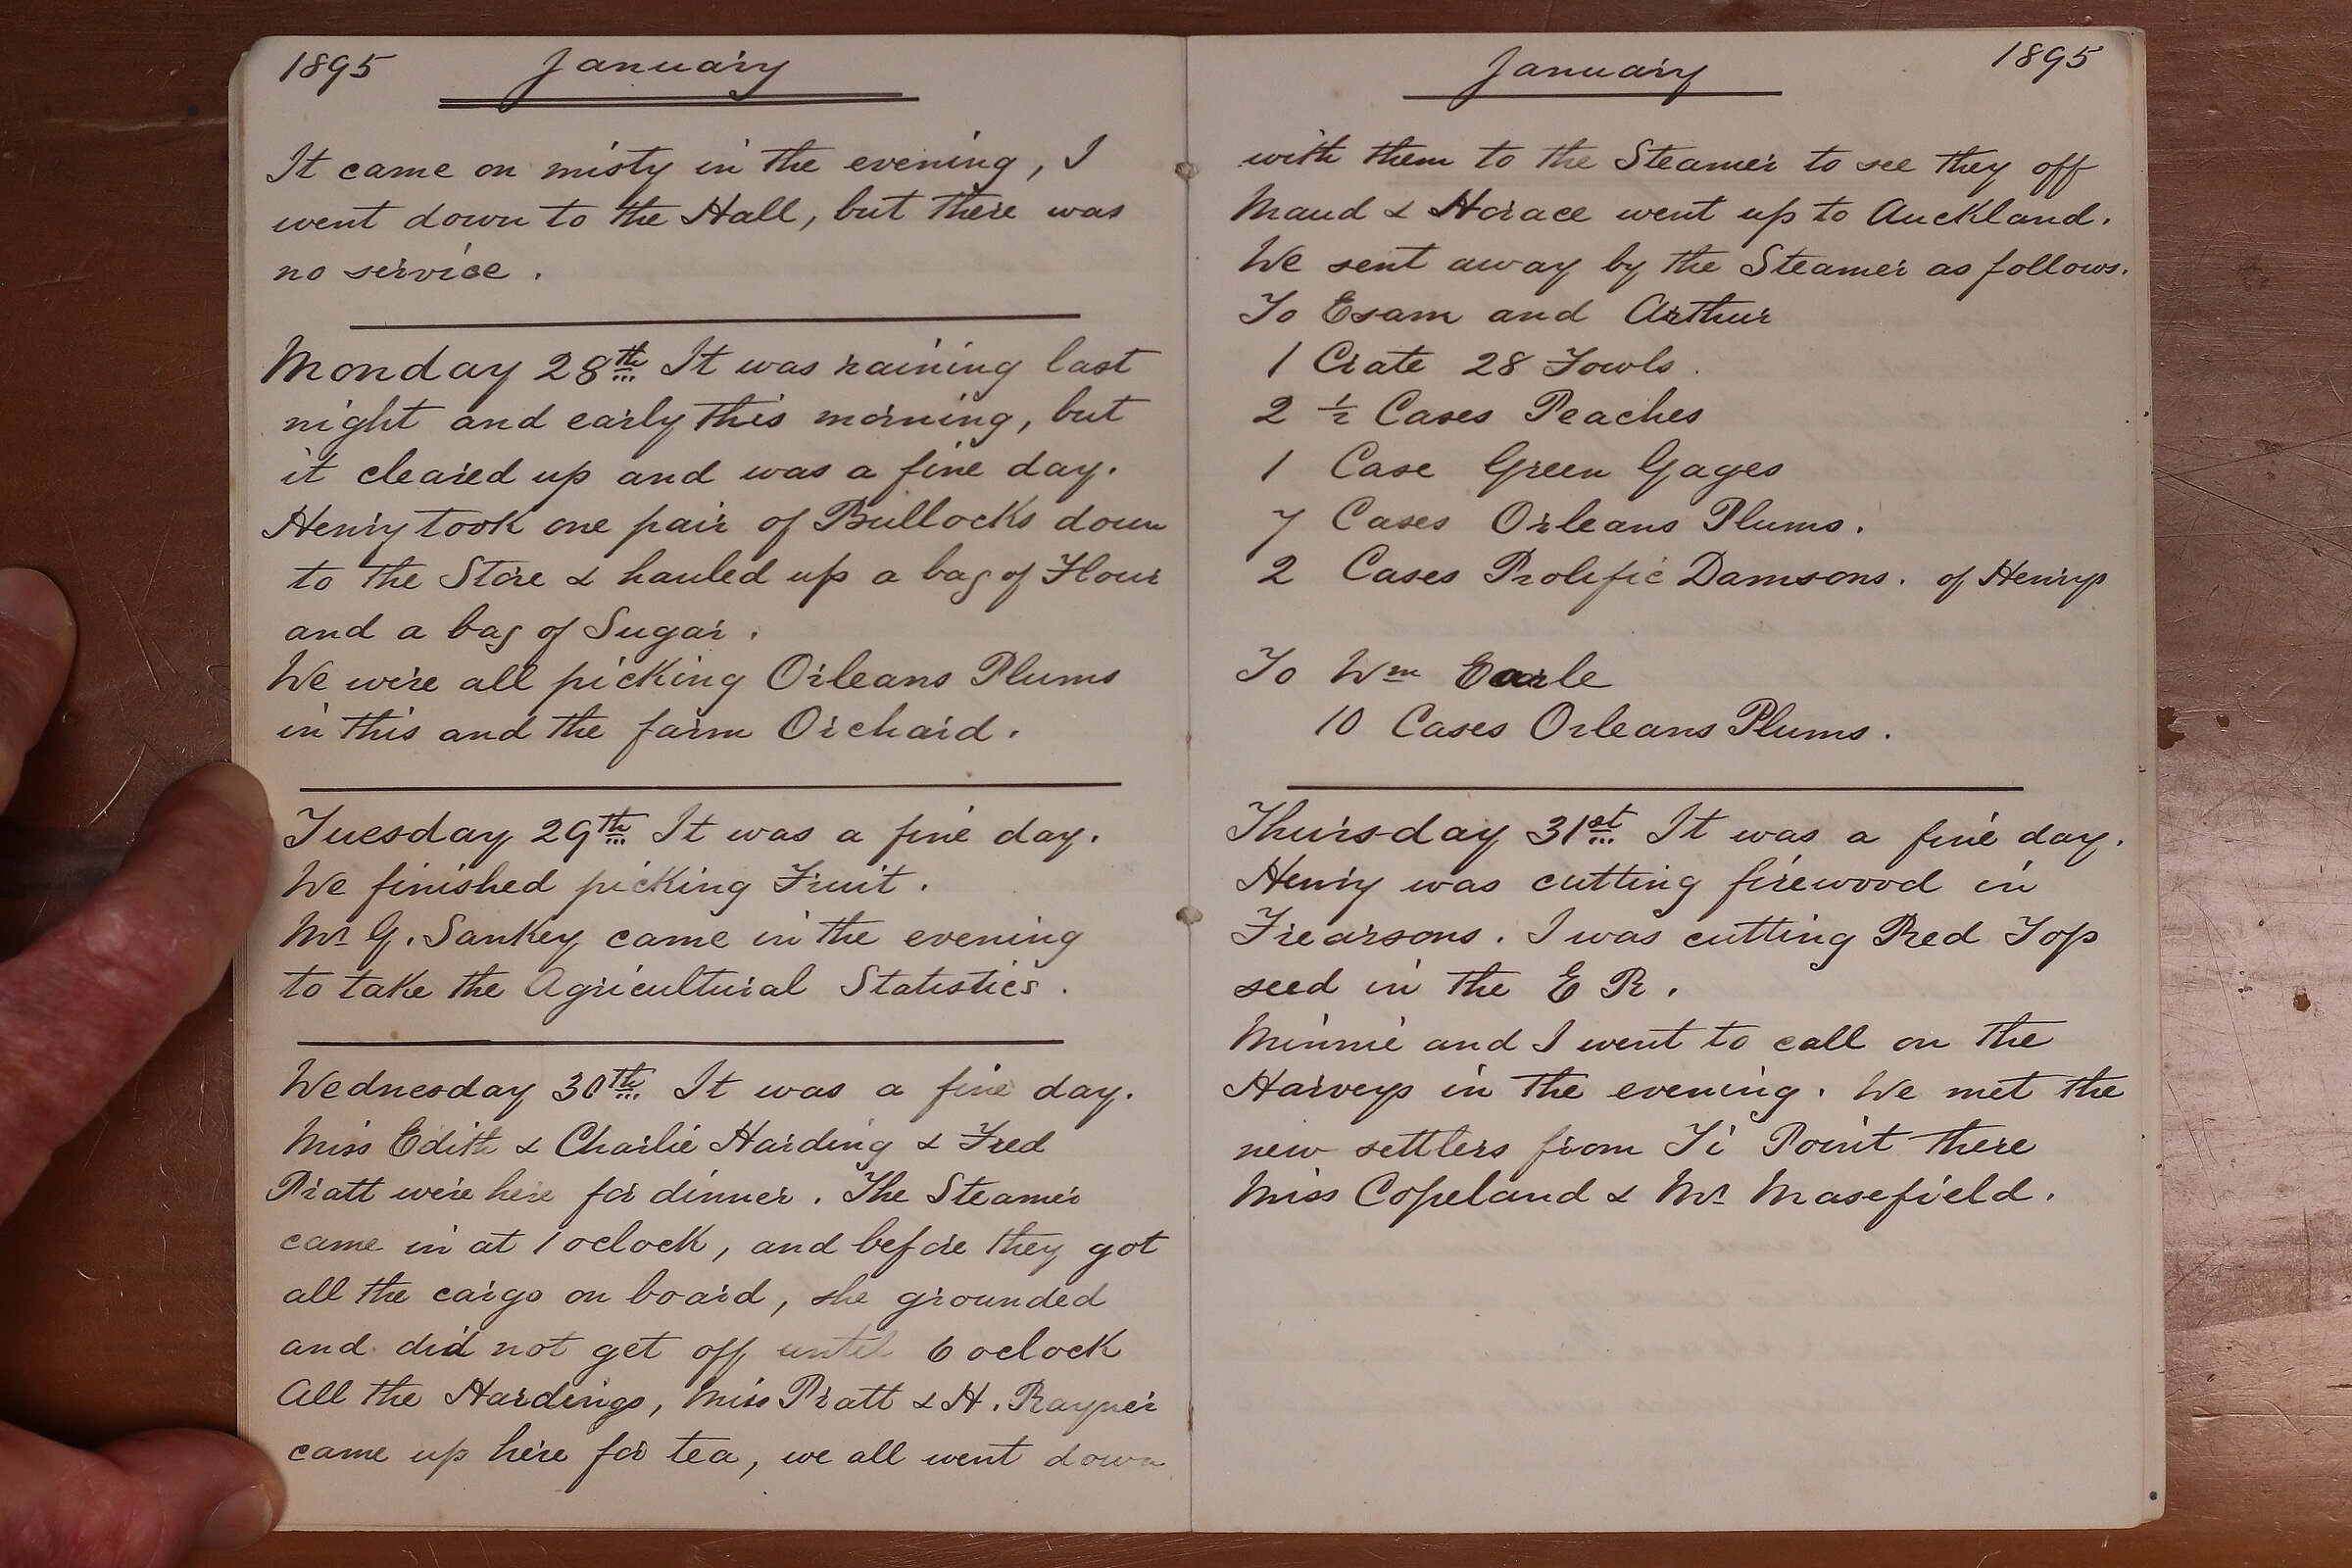 1895 January
It came on misty in the evening, I
went down to the Hall, but there was
no service.
Monday 28th It was raining last
night and early this morning, but
it cleared up and was a fine day.
Henry took one pair of Bullocks down
to the Store & hauled up a bag of Flour
and a bag of Sugar.
We were all picking Orleans Plums
in this and the farm Orchard.
Tuesday 29th It was a fine day.
We finished picking Fruit.
Mr G. Sankey came in the evening
to take the Agricultural Statistics.
Wednesday 30th It was a fine day.
Miss Edith & Charlie Harding & Fred
Pratt were here for dinner. The Steamer
came in at 1 oclock, and before they got
all the cargo on board, she grounded
and did not get off until 6 oclock
All the Hardings, Miss Pratt & H. Rayner
came up here for tea, we all went down
January 1895
with them to the Steamer to see they off
Maud & Horace went up to Auckland.
We sent away by the Steamer as follows.
To Esam and Arthur
1 Crate 28 Fowls.
2 ½ Cases Peaches
1 Case Green Gages
7 Cases Orleans Plums.
2 Cases Prolific Damsons. of Henrys
To Wm Earle
10 Cases Orleans Plums.
Thursday 31st It was a fine day.
Henry was cutting firewood in
Frearsons. I was cutting Red Top
seed in the E R.
Minnie and I went to call on the
Harveys in the evening. We met the
new settlers from Ti Point there
Miss Copeland & Mr Masefield.